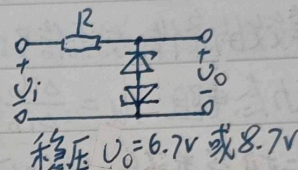 R
+
Ui
-
+
Uo
-
稳压 Uo=6.7V 或 8.7V